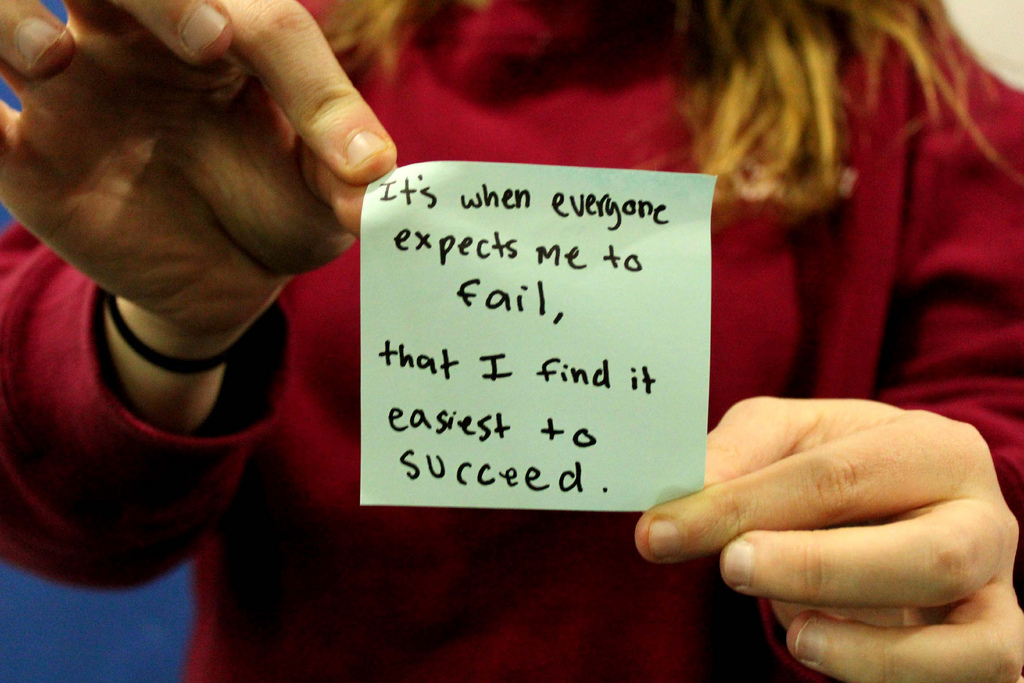 It's when everyone
expects me to
fail,
that I find it
easiest to
succeed.